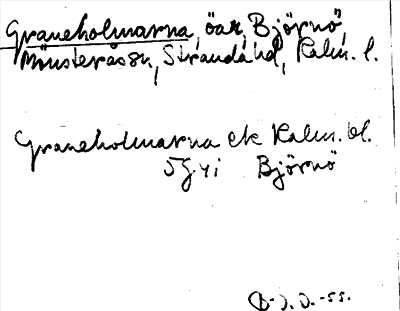 Graneholmarna, öar, Björnö,
Mönsterås sn, Stranda hd, Kalm. l.
Graneholmarna ek Kalm. bl.
5G 4i Björnö